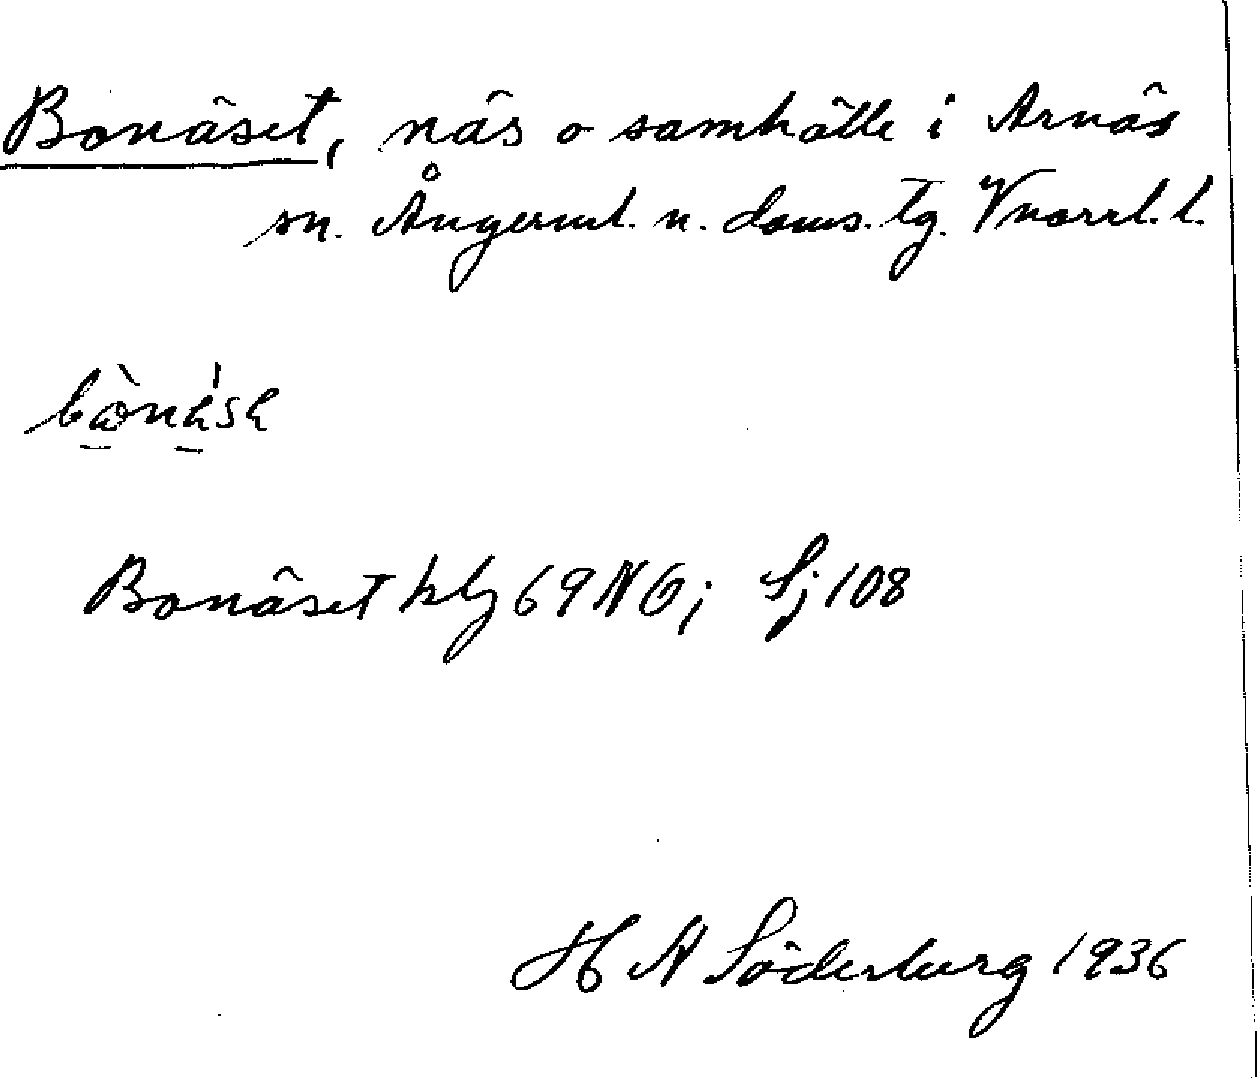 Bonäset, näs o samhälle i Arnäs
sn. Ångerml. n. doms. tg. Vnorrl. l.
Bonäset kbg 69 NO; Sj 108
H N Söderberg 1936